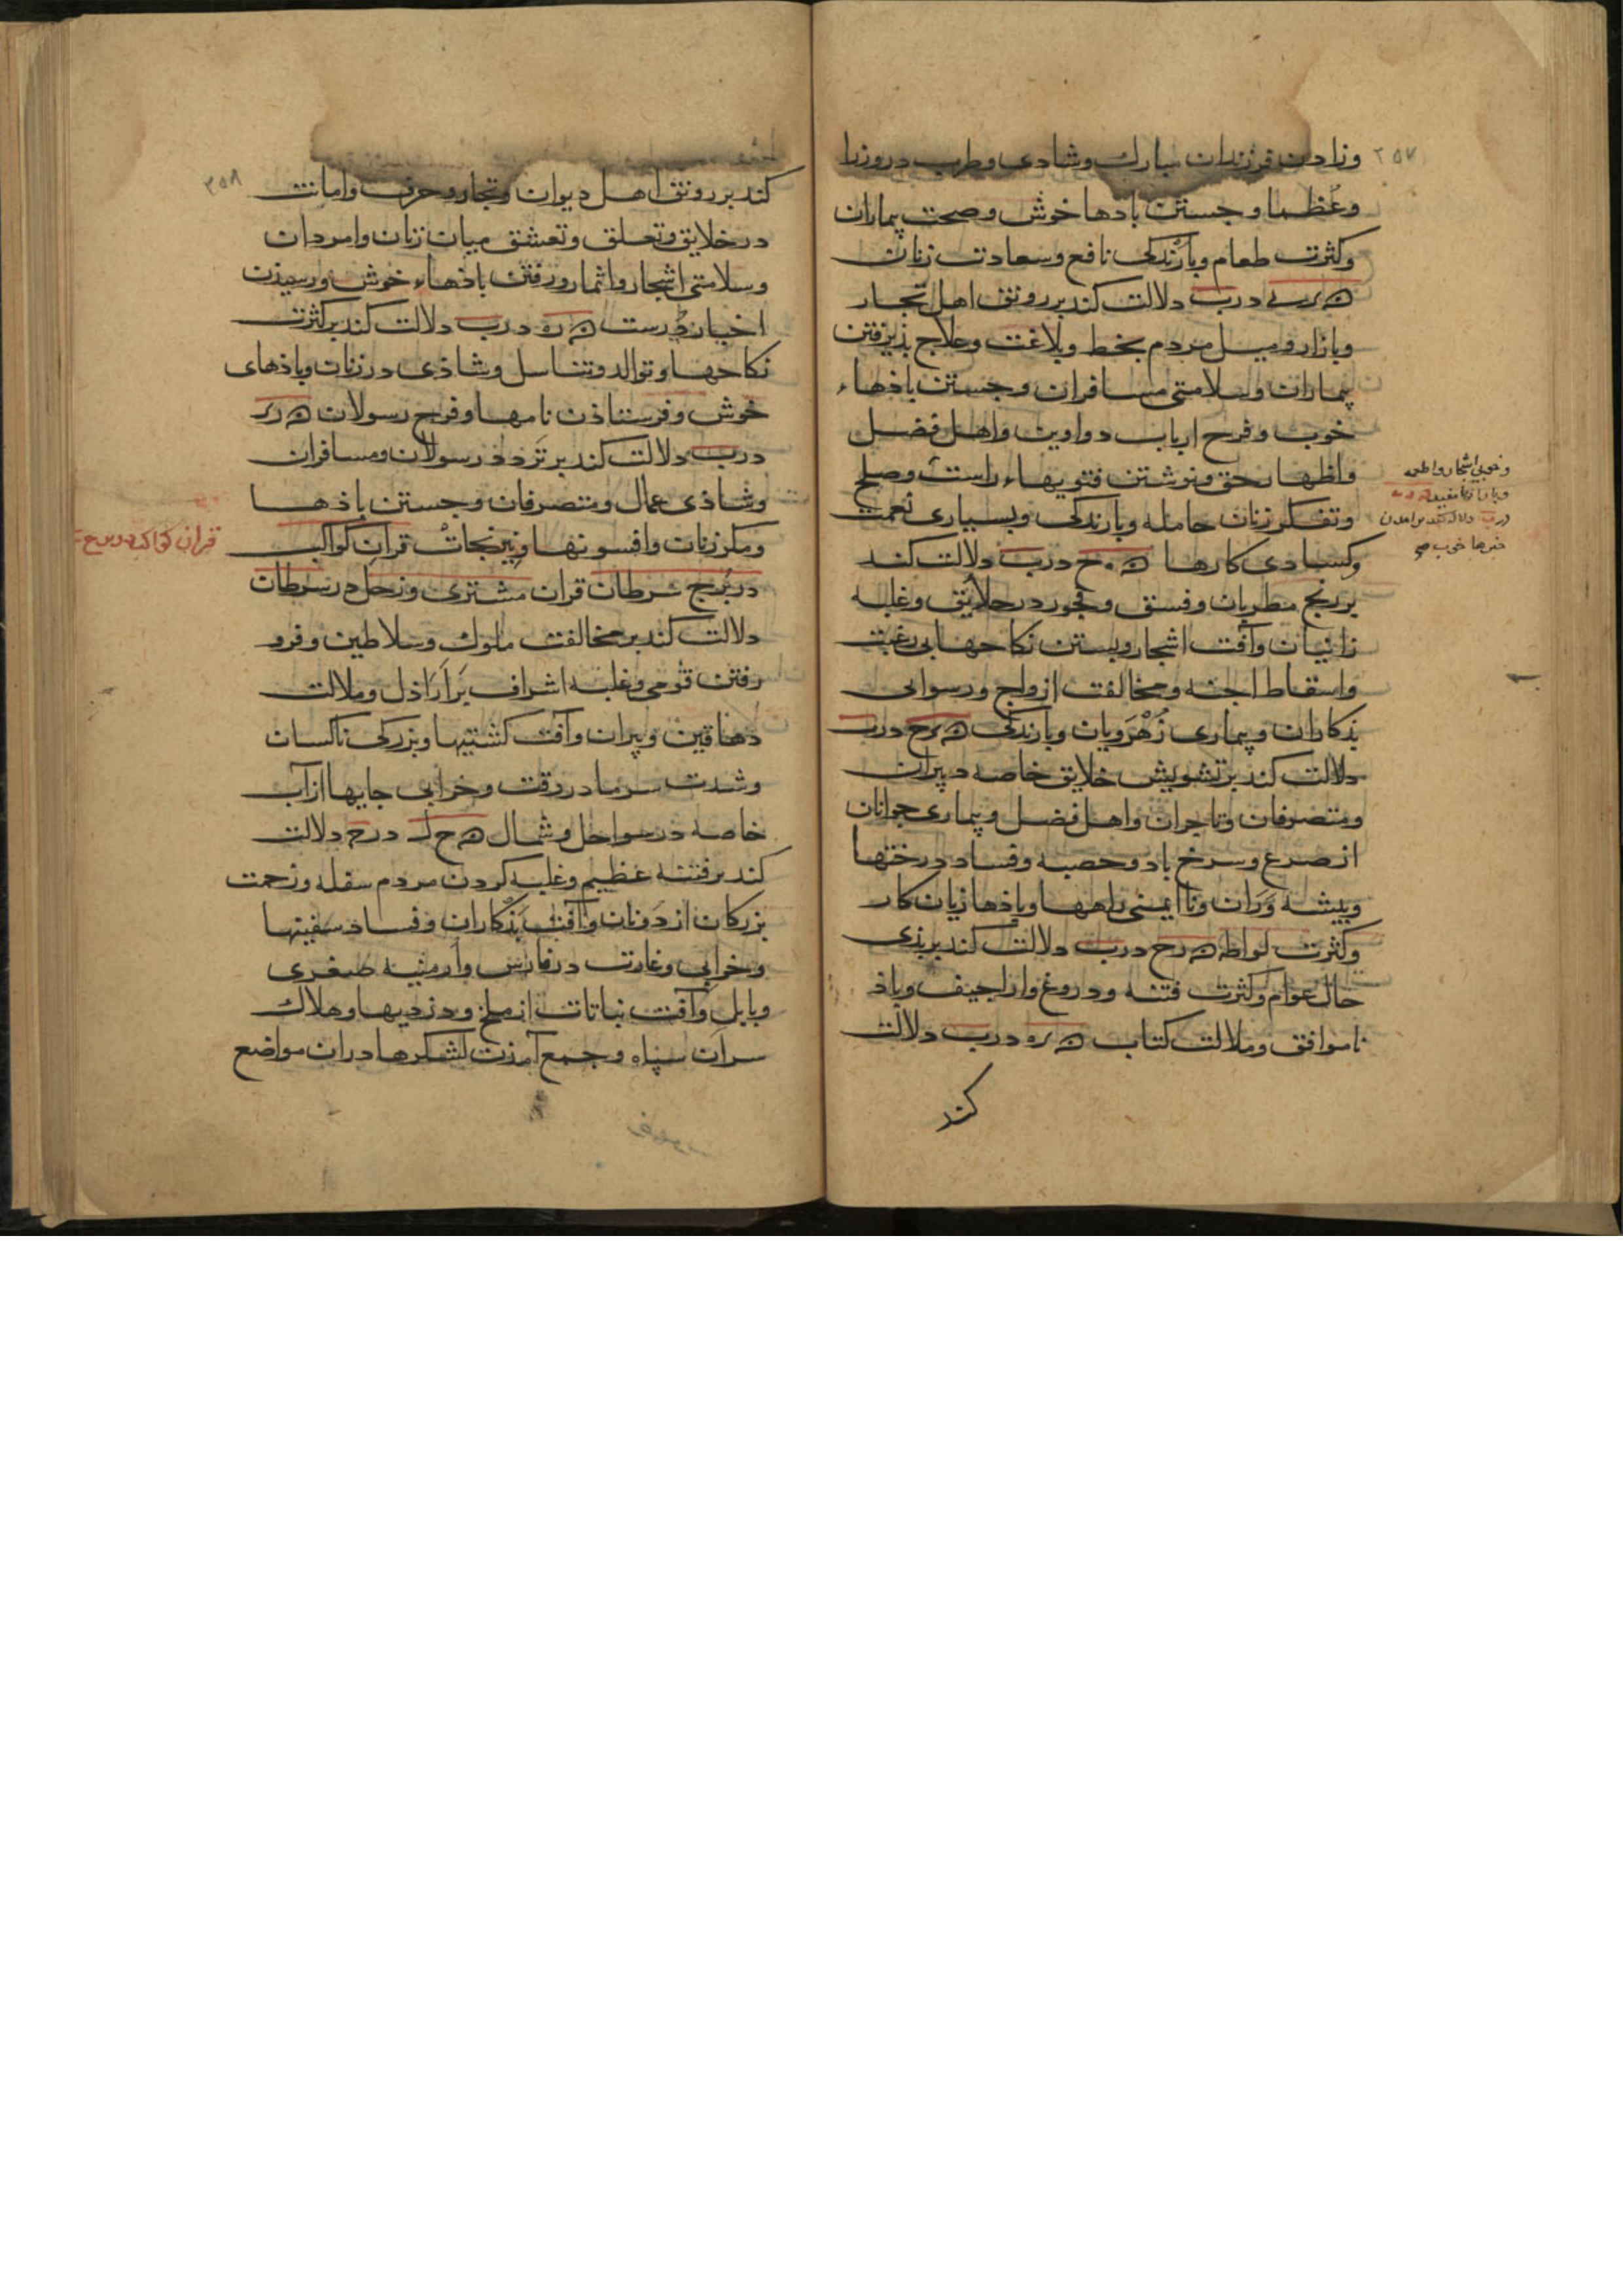 ۲۵۷
وزادن فرزندان مبارك وشادی وطرب در وزرا
وعظما وجستن بادها خوش وصحت بیماران
وكثرت طعام وبارندكی نافع وسعادت زنان
درب دلالت كند بر رونق اهل تجار
وبازار ومیل مردم بخط وبلاغت وعلاج بذیرفتن
بیماران وسلامتی مسافران وجستن باذهاء
خوب وفرح ارباب دواوین واهل فضل
واظهار حق ونوشتن فتویهاء راست وصلح
وتفكر زنان حامله وبارندكی وبسیاری نعمت
وكسادی كارها درب دلالت كند
بر رنج مطربان وفسق وفجور در خلایق وغلبه
زانیان وآفت اشجار وبستن نكاحها بی رغبت
واسقاط اجنه ومخالفت ازواج ورسوایی
بذكاران وبیماری زهرویان وبارندكی درب
دلالت كند بر تشویش خلایق خاصه دبیران
ومتصرفان وتاجران واهل فضل وبیماری جوانان
از صرع وسرخ باد وحصبه وفساد درختها
وبیشه وران ونا ایمنی راهها وباذها زیان كار
وكثرت لواطه درب دلالت كند بر بذی
حال عوام وكثرت فتنه ودروغ واراجیف وباذ
ناموافق وملالت كتاب درب دلالت
كند
وخوبی اشجار واطعمه
درب دلالت كند بر امدن
خبرها خوب صح
۲۵۸
كند بر رونق اهل دیوان وتجار وحرف وامانت
در خلایق وتعلق وتعشق میان زنان وامردان
وسلامتی اشجار واثمار ورفتن باذهاء خوش ورسیذن
اخبار درست درب دلالت كند بر كثرت
نكاحها وتوالد وتناسل وشاذی در زنان وباذهای
خوش وفرستاذن نامها وفرح رسولان
درب دلالت كند بر تردد رسولان ومسافران
وشاذی عمال ومتصرفان وجستن باذها
ومكر زنان وافسونها ونیرنجات قران كواكب
در برج سرطان قران مشتری وزحل در سرطان
دلالت كند بر مخالفت ملوك وسلاطین وفرو
رفتن قومی وغلبه اشراف بر اراذل وملالت
دهاقین وبیران وآفت كشتیها وبزركی ناكسان
وشدت سرما در وقت وخرابی جایها از آب
خاصه در سواحل وشمال درح دلالت
كند بر فتنه عظیم وغلبه كردن مردم سفله وزحمت
بزركان از دونان وآفت بذكاران وفساد سفینها
وخرابی وغارت در فارس وارمنیه صغری
وبابل وآفت نباتات از ملخ ودزدیها وهلاك
سران سپاه وجمع آمذن لشكرها دران مواضع
قران كواكب در برج